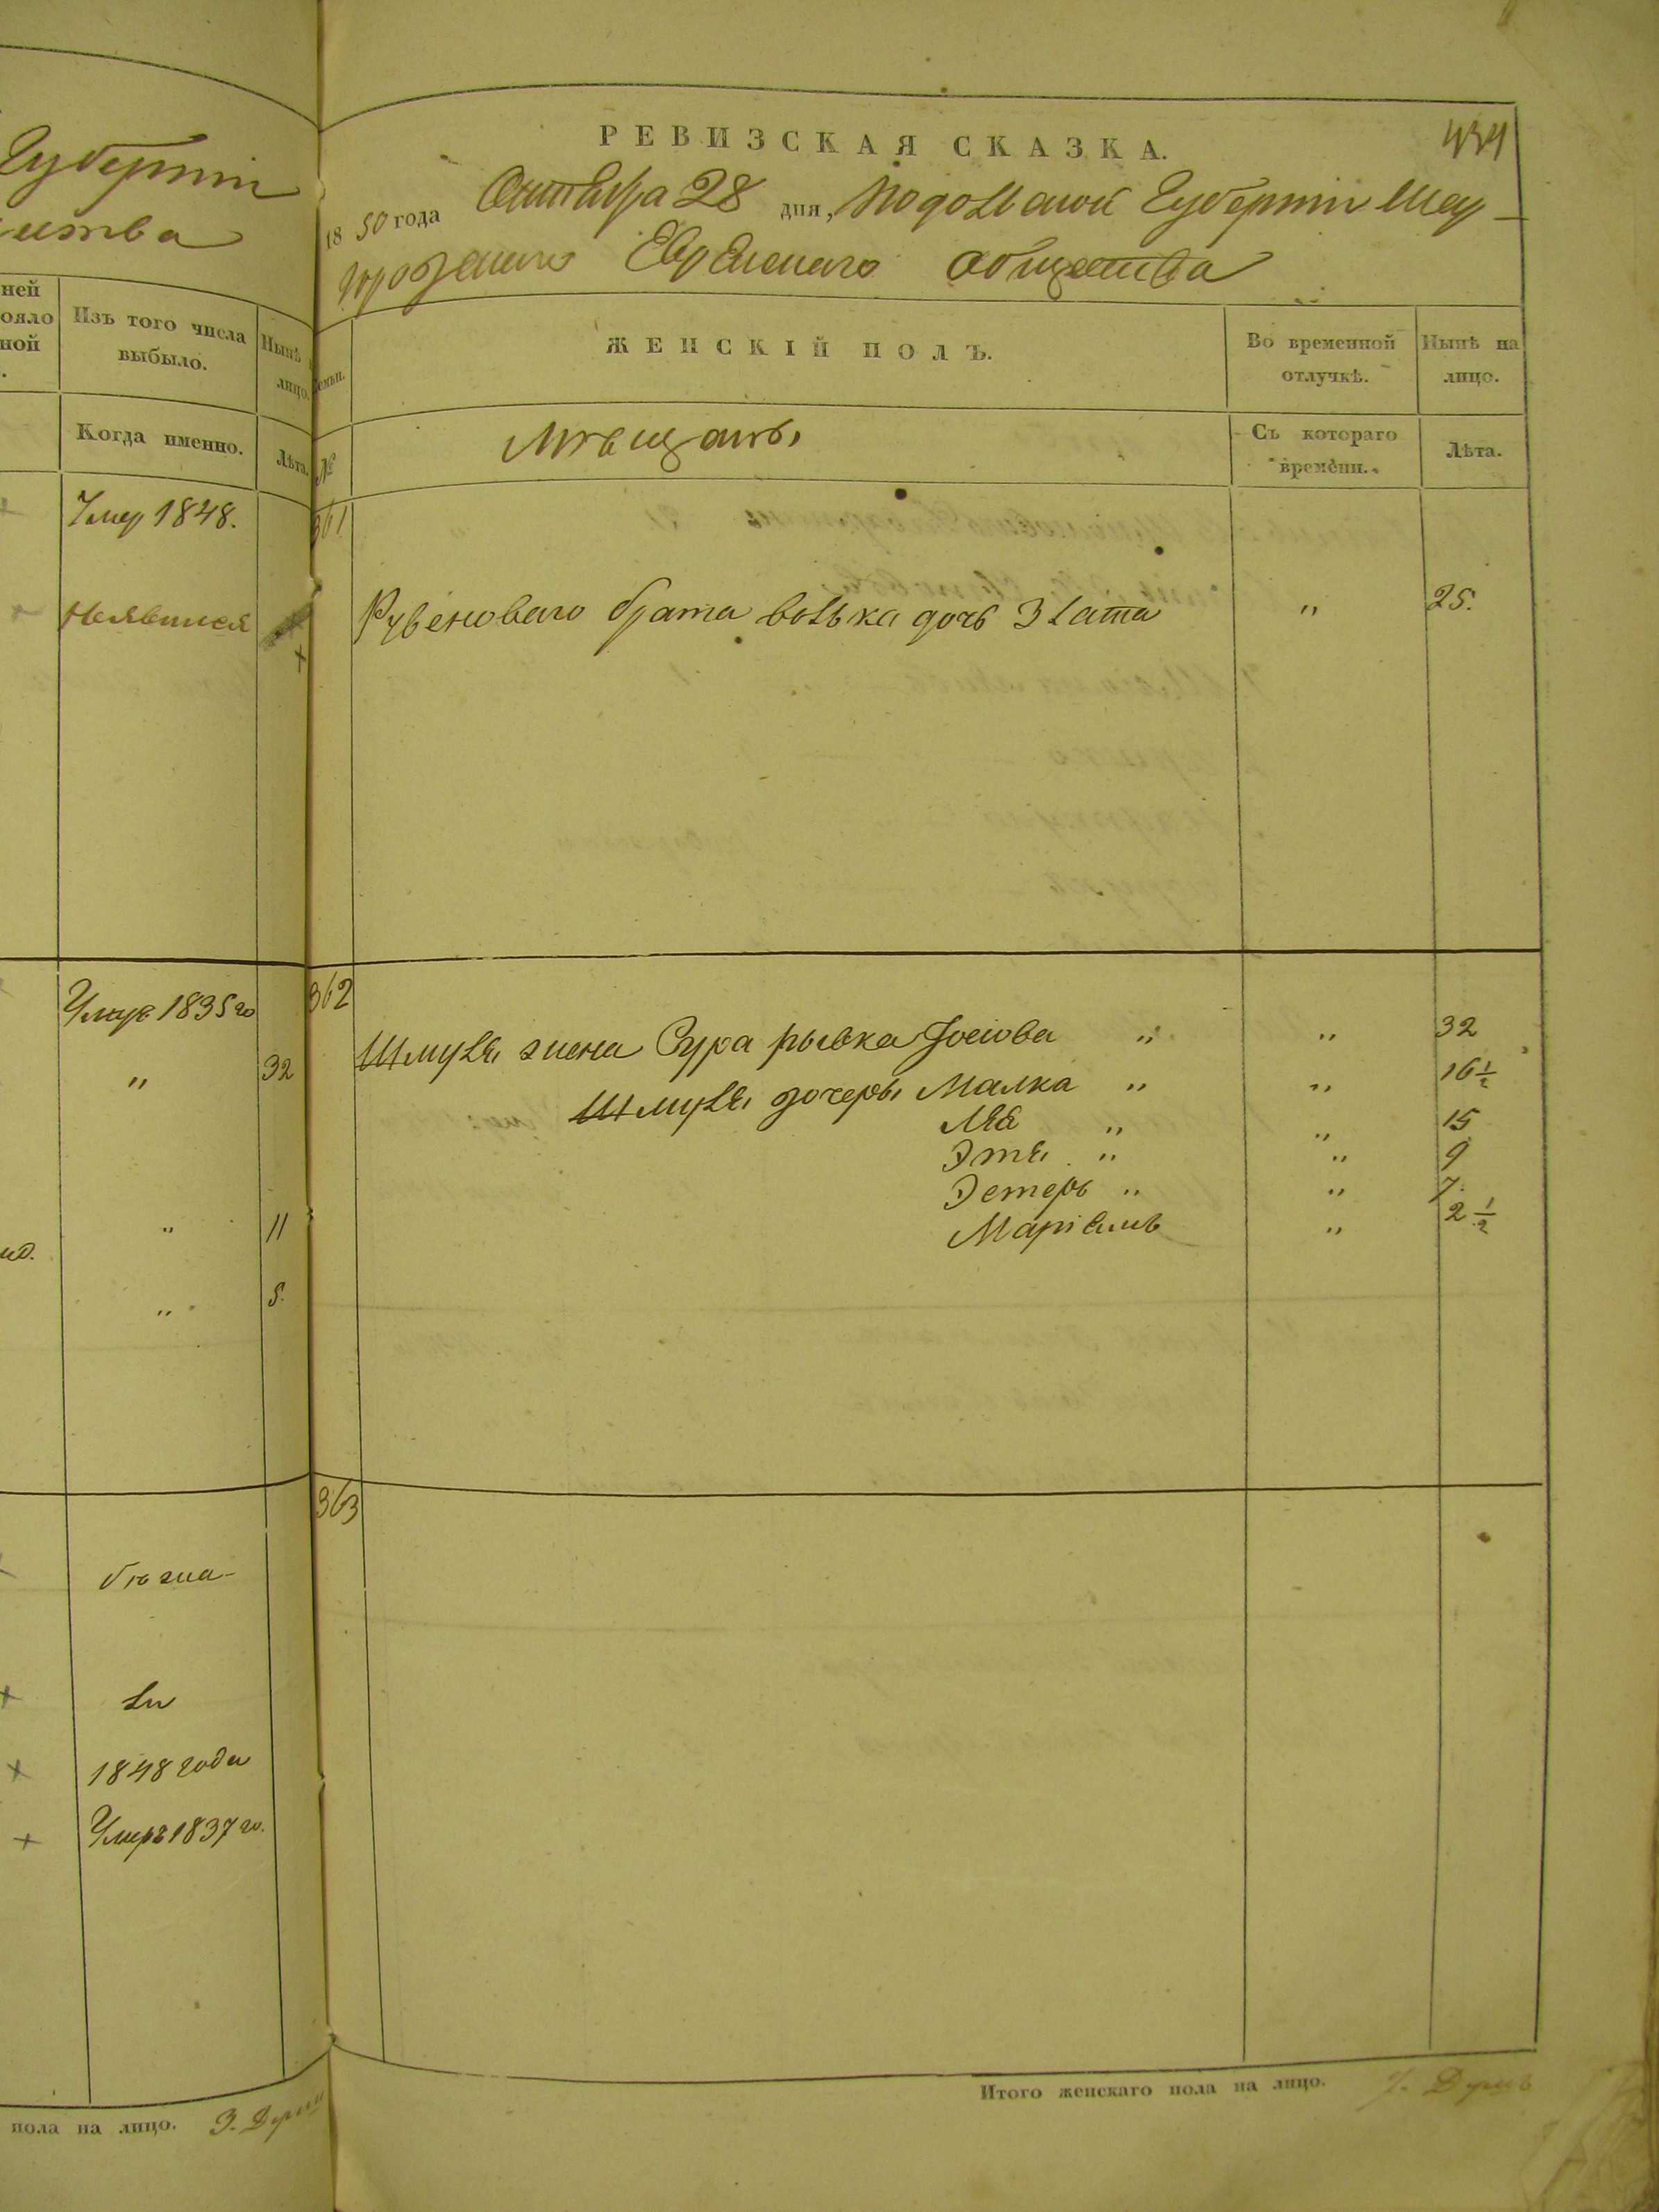 Губерніи
ества
ней
ояло
ной
Изъ того числа
выбыло.
Нынѣ
лицо.
Когда именно.
Лѣта.
Умер 1848.
Неявился
Умеръ 1835 го
" 32
" 11
" 5.
бѣжа-
ли
1848 года
Умеръ 1837 го.
пола на лицо. 3. Душъ
РЕВИЗСКАЯ СКАЗКА.
434
1850 года Октября 28 дня, Подольской Губерніи Шар-
городскаго Еврейскаго общества
семьи.
ЖЕНСКІЙ ПОЛЪ.
Во временной
отлучкѣ.
Нынѣ на
лицо.
№
Мѣщанъ
Съ котораго
времени.
Лѣта.
361
Рувеноваго брата волька дочь Злата " 25.
362
Шмуля жена Сура рывка Іосіова " " 32
Шмуля дочеры Малка " " 16 1/2
Лея " " 15
Этя " " 9
Эстеръ " " 7.
Маріямъ " 2 1/2
363
Итого женскаго пола на лицо. 7. Душъ